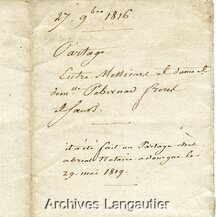 27. 9bre 1816
Partage
Entre Messieurs et dame et
demlle Pébernad freres
et sœurs
et a été fait un Partage chez
abrial Notaire a dourgne le
29. mai 1819.
Archives Langautier